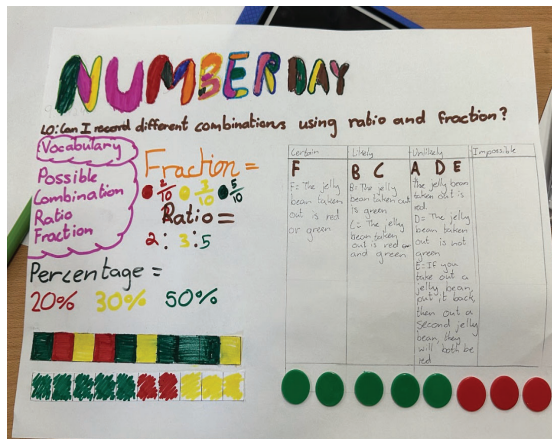 NUMBER DAY
LO: Can I record different combinations using ratio and fraction?
Vocabulary
Possible
Combination
Ratio
Fraction
Fraction =
2/10 3/10 5/10
Ratio =
2 : 3 : 5
Percentage =
20% 30% 50%
Certain
F
F= The jelly
bean taken
out is red
or green
Likely
B C
B= The jelly
bean taken out
is green
C= The jelly
bean taken
out is red or
and green
Unlikely
A D E
the jelly bean
taken out is
red
D= The jelly
bean taken
out is not
green
E= If you
take out a
jelly bean,
put it back,
then out a
second jelly
bean, they
will both be
red
Impossible